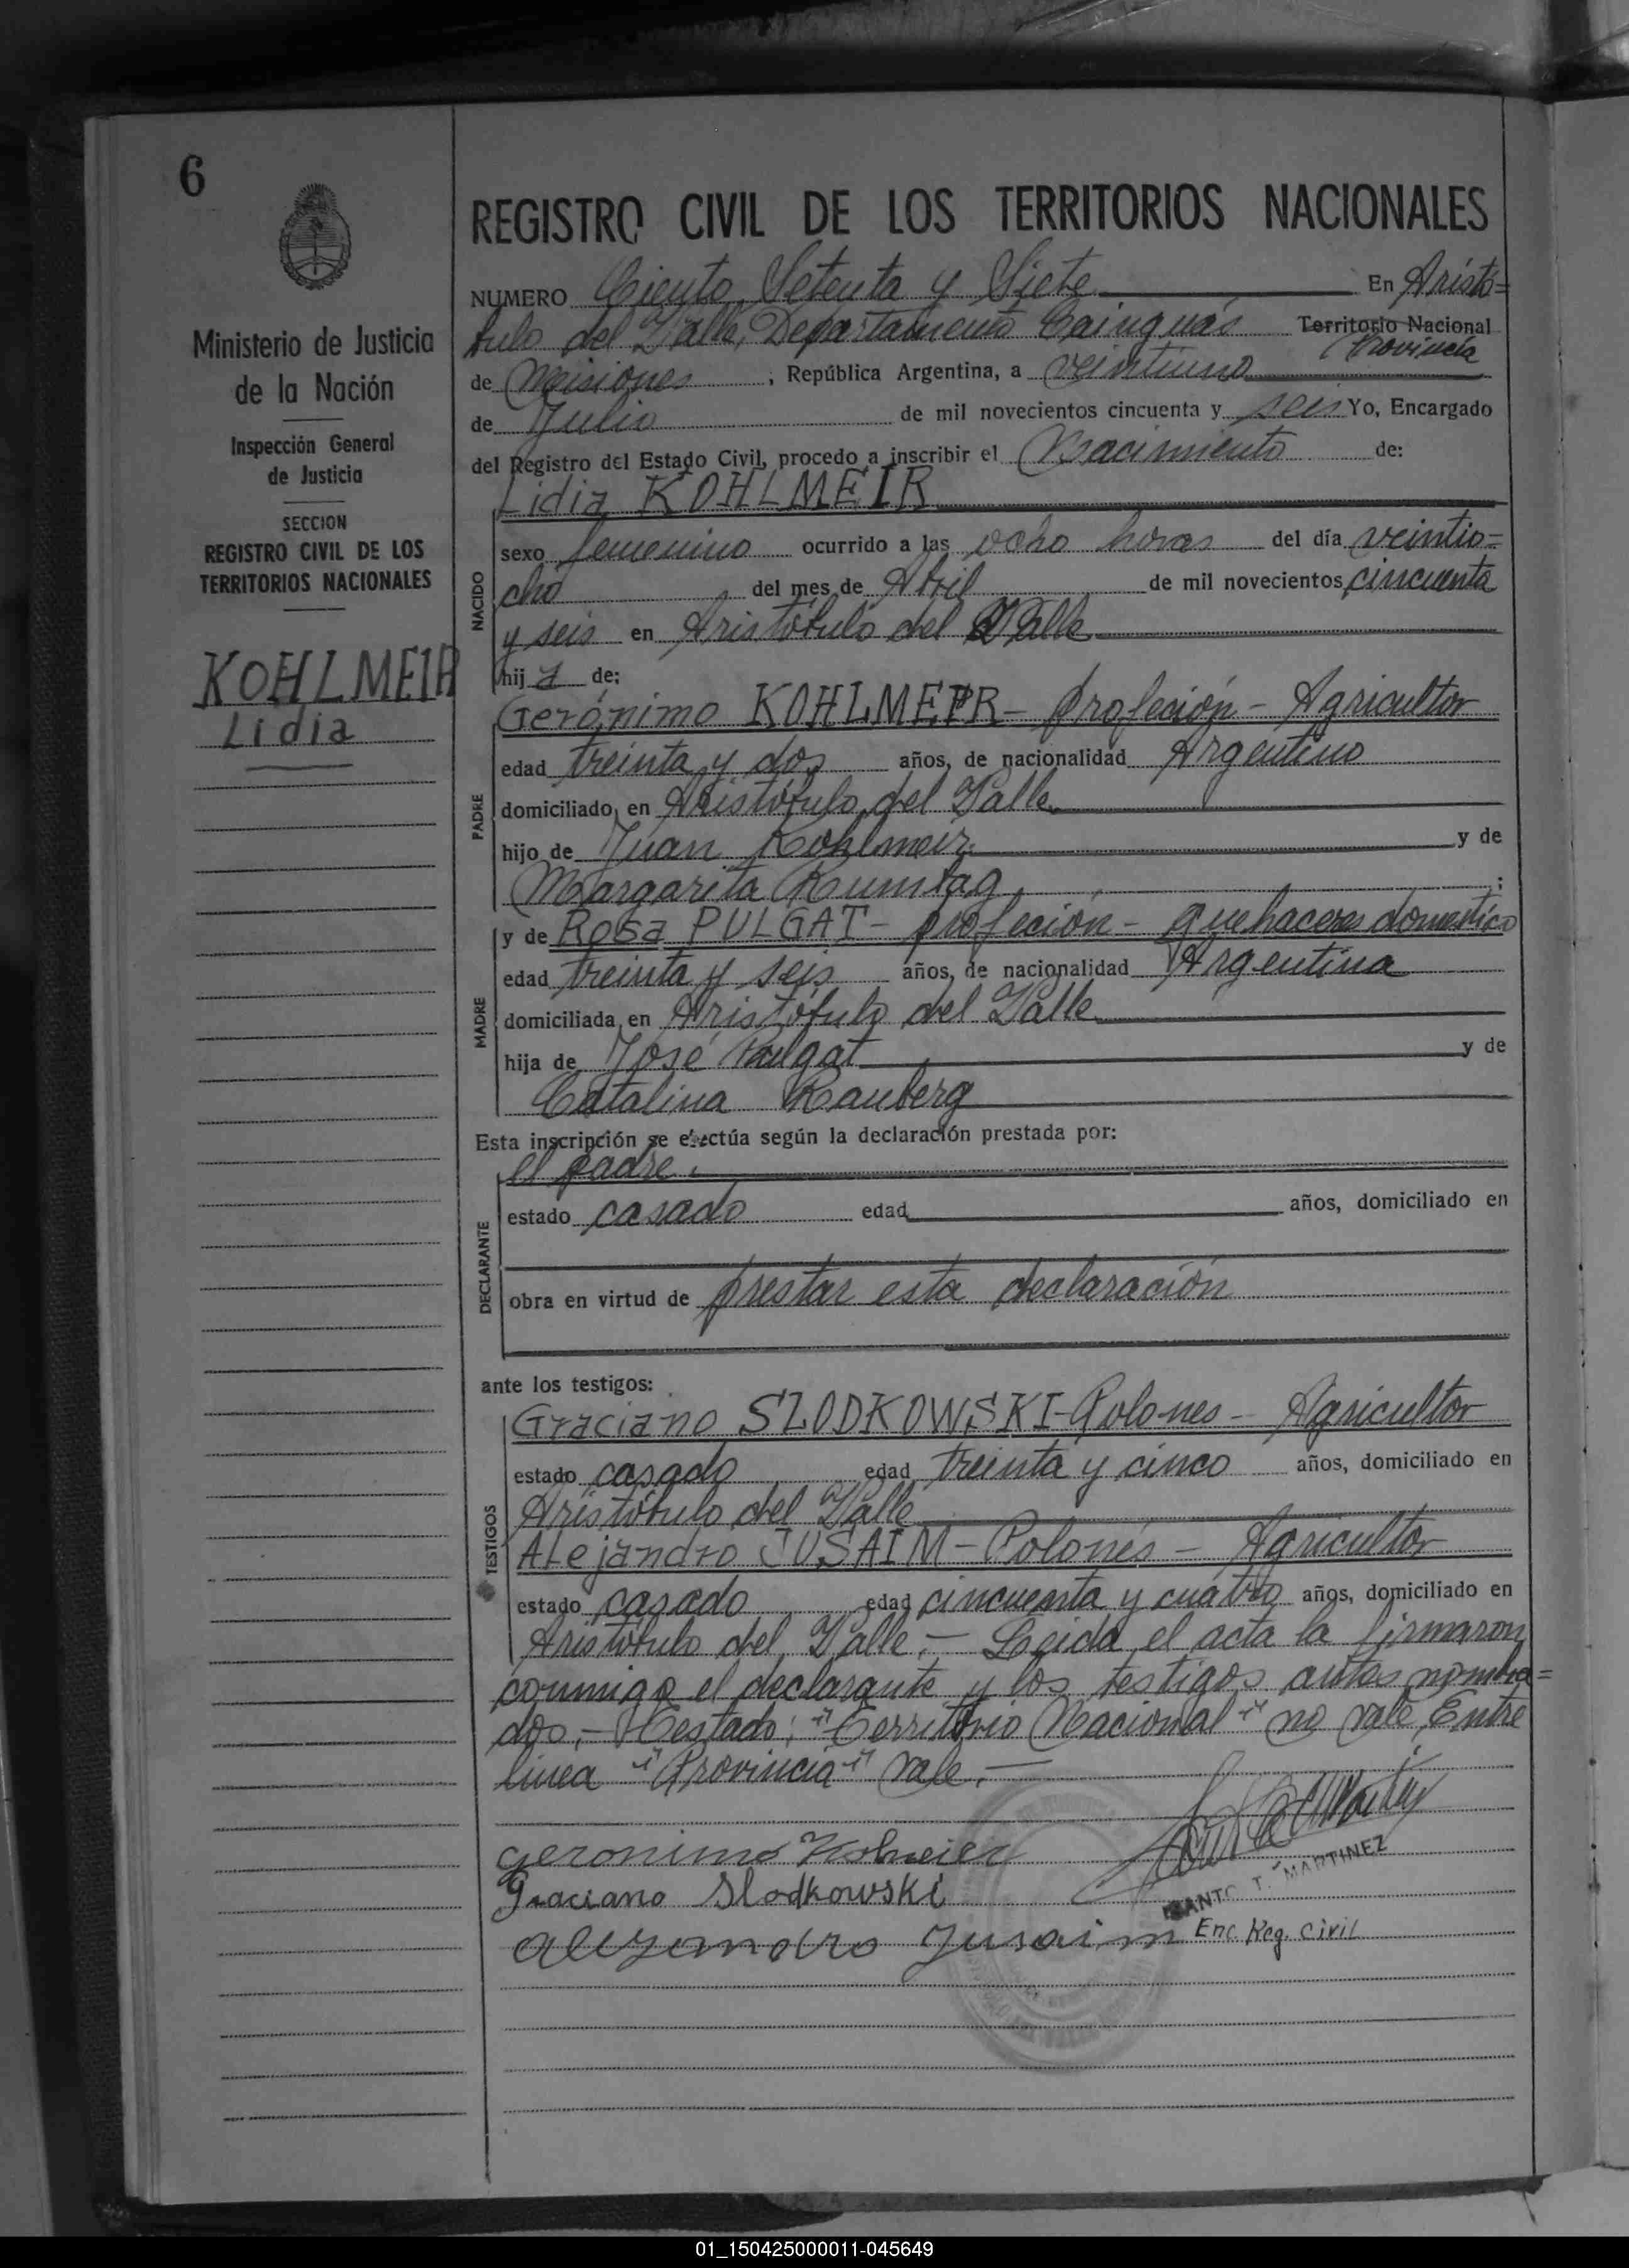 6
Ministerio de Justicia
de la Nación
Inspección General
de Justicia
SECCION
REGISTRO CIVIL DE LOS
TERRITORIOS NACIONALES
KOHLMEIR
Lidia
REGISTRO CIVIL DE LOS TERRITORIOS NACIONALES
NUMERO Ciento Setenta y Siete En Aristó=
bulo del Valle, Departamento Cainguás Territorio Nacional
Provincia
de Misiones ; República Argentina, a veintiuno
de Julio de mil novecientos cincuenta y seis Yo, Encargado
del Registro del Estado Civil, procedo a inscribir el Nacimiento de:
Lidia KOHLMEIR
NACIDO
sexo femenino ocurrido a las ocho horas del día veintio=
cho del mes de Abril de mil novecientos cincuenta
y seis en Aristóbulo del Valle
hija de:
PADRE
Gerónimo KOHLMEIR - profeción - Agricultor
edad treinta y dos años, de nacionalidad Argentino
domiciliado en Aristóbulo del Valle
hijo de Juan Kohlmeir y de
Margarita Rumtag ;
MADRE
y de Rosa PULGAT - profeción - quehaceres domestico
edad treinta y seis años, de nacionalidad Argentina
domiciliada en Aristóbulo del Valle
hija de José Pulgat y de
Catalina Rauberg
Esta inscripción se efectúa según la declaración prestada por:
DECLARANTE
el padre.
estado casado edad años, domiciliado en
obra en virtud de prestar esta declaración
ante los testigos:
TESTIGOS
Graciano SLODKOWSKI - Polones - Agricultor
estado casado edad treinta y cinco años, domiciliado en
Aristóbulo del Valle
Alejandro JUSAIM - Polonés - Agricultor
estado casado edad cincuenta y cuatro años, domiciliado en
Aristóbulo del Valle. - Leida el acta la firmaron
conmigo el declarante y los testigos antes nombra=
dos. - Testado: "Territorio Nacional" no vale, Entre
linea "Provincia" vale. -
geronimo Kolmeier
Graciano Slodkowski
alejandro Jusaim
SANTO T. MARTINEZ
Enc. Reg. Civil
01_150425000011-045649